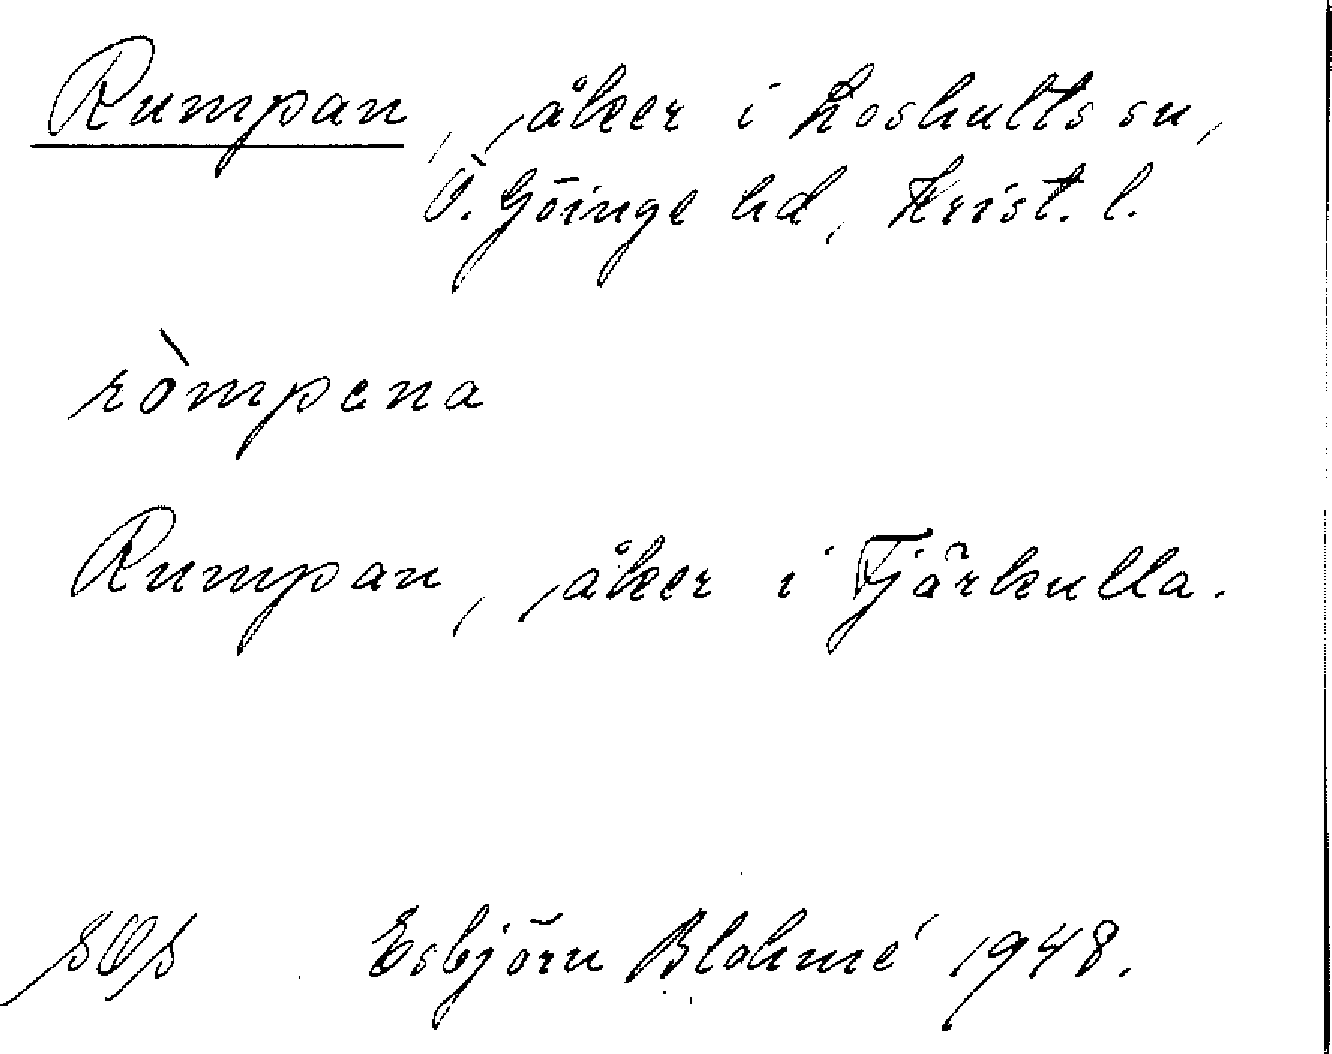 Rumpan, åker i Loshults sn,
Ö. Göinge hd, Krist. l.
ròmpena
Rumpan, åker i Tjärkulla.
SOS Esbjörn Blohmé 1948.